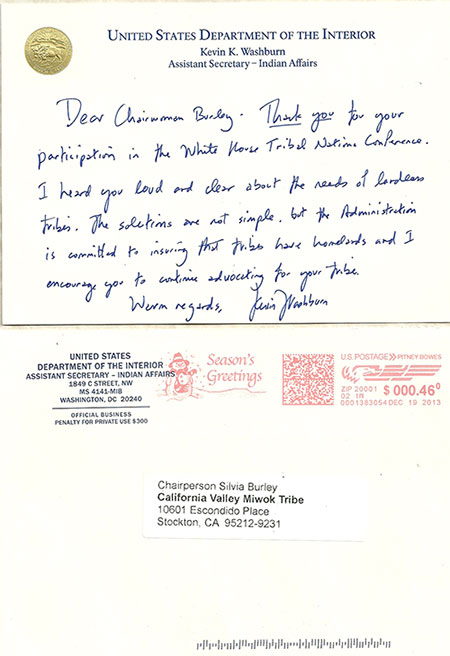 UNITED STATES DEPARTMENT OF THE INTERIOR
Kevin K. Washburn
Assistant Secretary – Indian Affairs
Dear Chairwoman Burley - Thank you for your
participation in the White House Tribal Nations Conference.
I heard you loud and clear about the needs of landless
tribes. The solutions are not simple, but the Administration
is committed to insuring that tribes have homelands and I
encourage you to continue advocating for your tribe.
Warm regards, Kevin Washburn
UNITED STATES
DEPARTMENT OF THE INTERIOR
ASSISTANT SECRETARY - INDIAN AFFAIRS
1849 C STREET, NW
MS 4141-MIB
WASHINGTON, DC 20240
OFFICIAL BUSINESS
PENALTY FOR PRIVATE USE $300
Season's
Greetings
U.S. POSTAGE>>PITNEY BOWES
ZIP 20001 $ 000.46⁰
02 1R
0001383054 DEC 19 2013
Chairperson Silvia Burley
California Valley Miwok Tribe
10601 Escondido Place
Stockton, CA 95212-9231